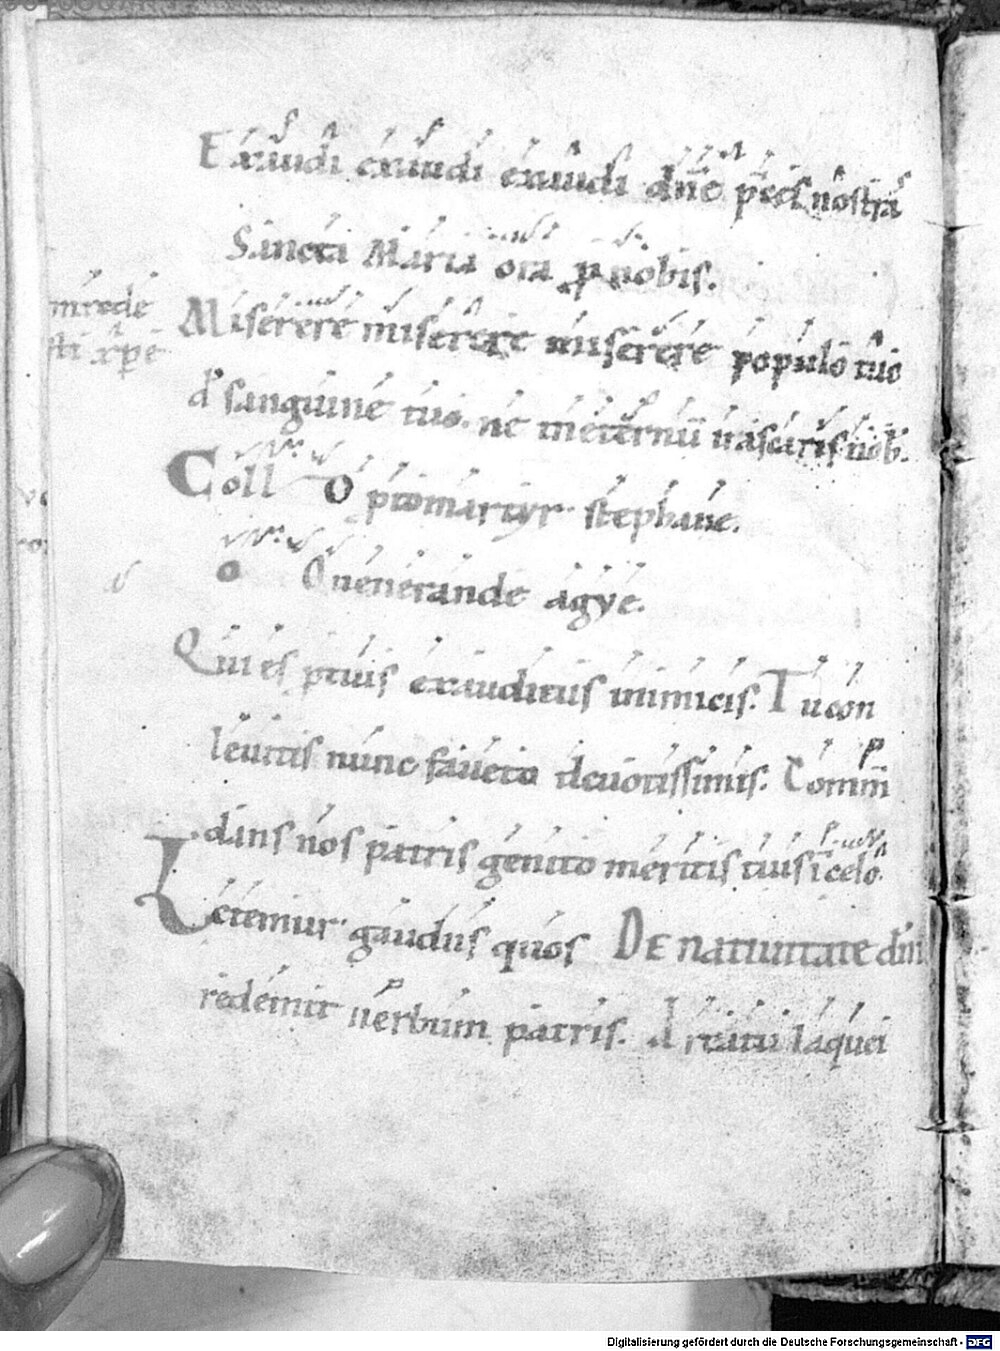 Exaudi exaudi exaudi dn̄e p̄ces nostrā
Sancta Maria ora p nobis.
m rede
Miserere miserere miserere populo tuo
sti xp̄e
d' sanguine tuo. ne ineternū irascaris nob.
Coll O ptomartyr stephane.
O O uenerande agye.
Qui es ptuis exauditus inimicis. Tu con
leuitis nunc faueto deuotissimis. Comm̄
dans nos patris genito meritis tuis ī celo.
Letemur gaudiis quos DE natiuitate dn̄i
redemit uerbum patris. A rtatu laquei
Digitalisierung gefördert durch die Deutsche Forschungsgemeinschaft - DFG